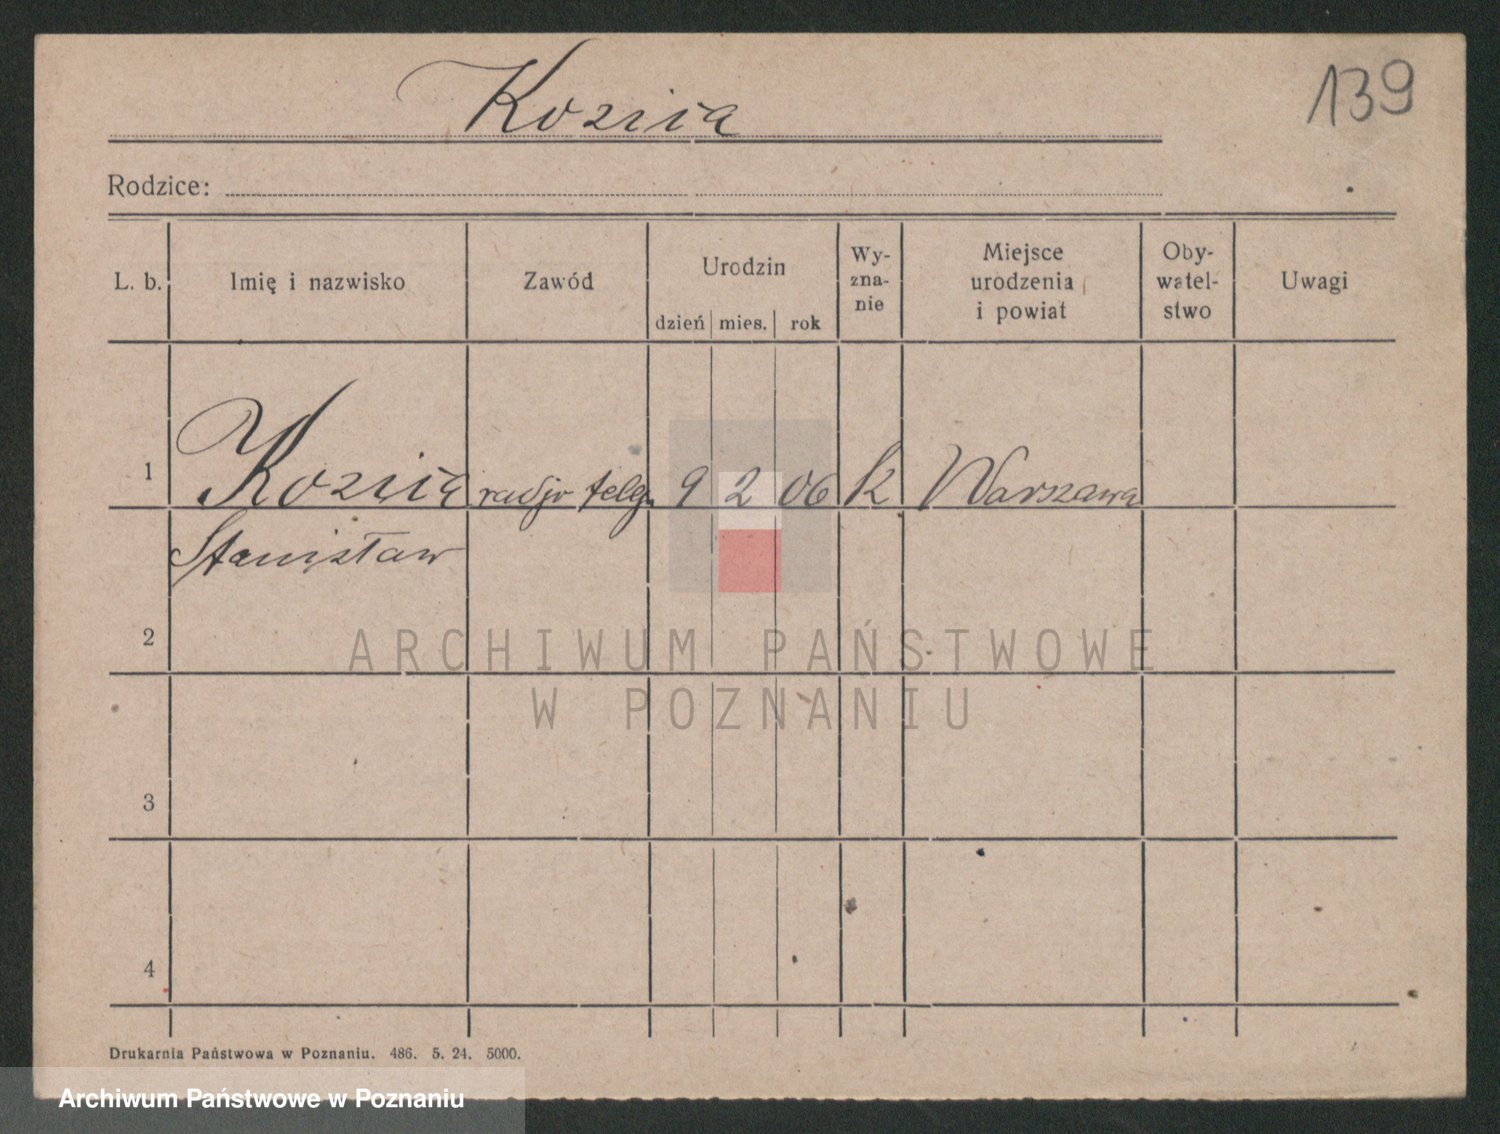 Kozica
139
Rodzice:
L. b. Imię i nazwisko Zawód Urodzin dzień mies. rok Wy-zna-nie Miejsce urodzenia i powiat Oby-watel-stwo Uwagi
1 Kozica radjo telegr 9 2 06 k Warszawa
Stanisław
2
ARCHIWUM PAŃSTWOWE
W POZNANIU
3
4
Drukarnia Państwowa w Poznaniu. 486. 5. 24. 5000.
Archiwum Państwowe w Poznaniu